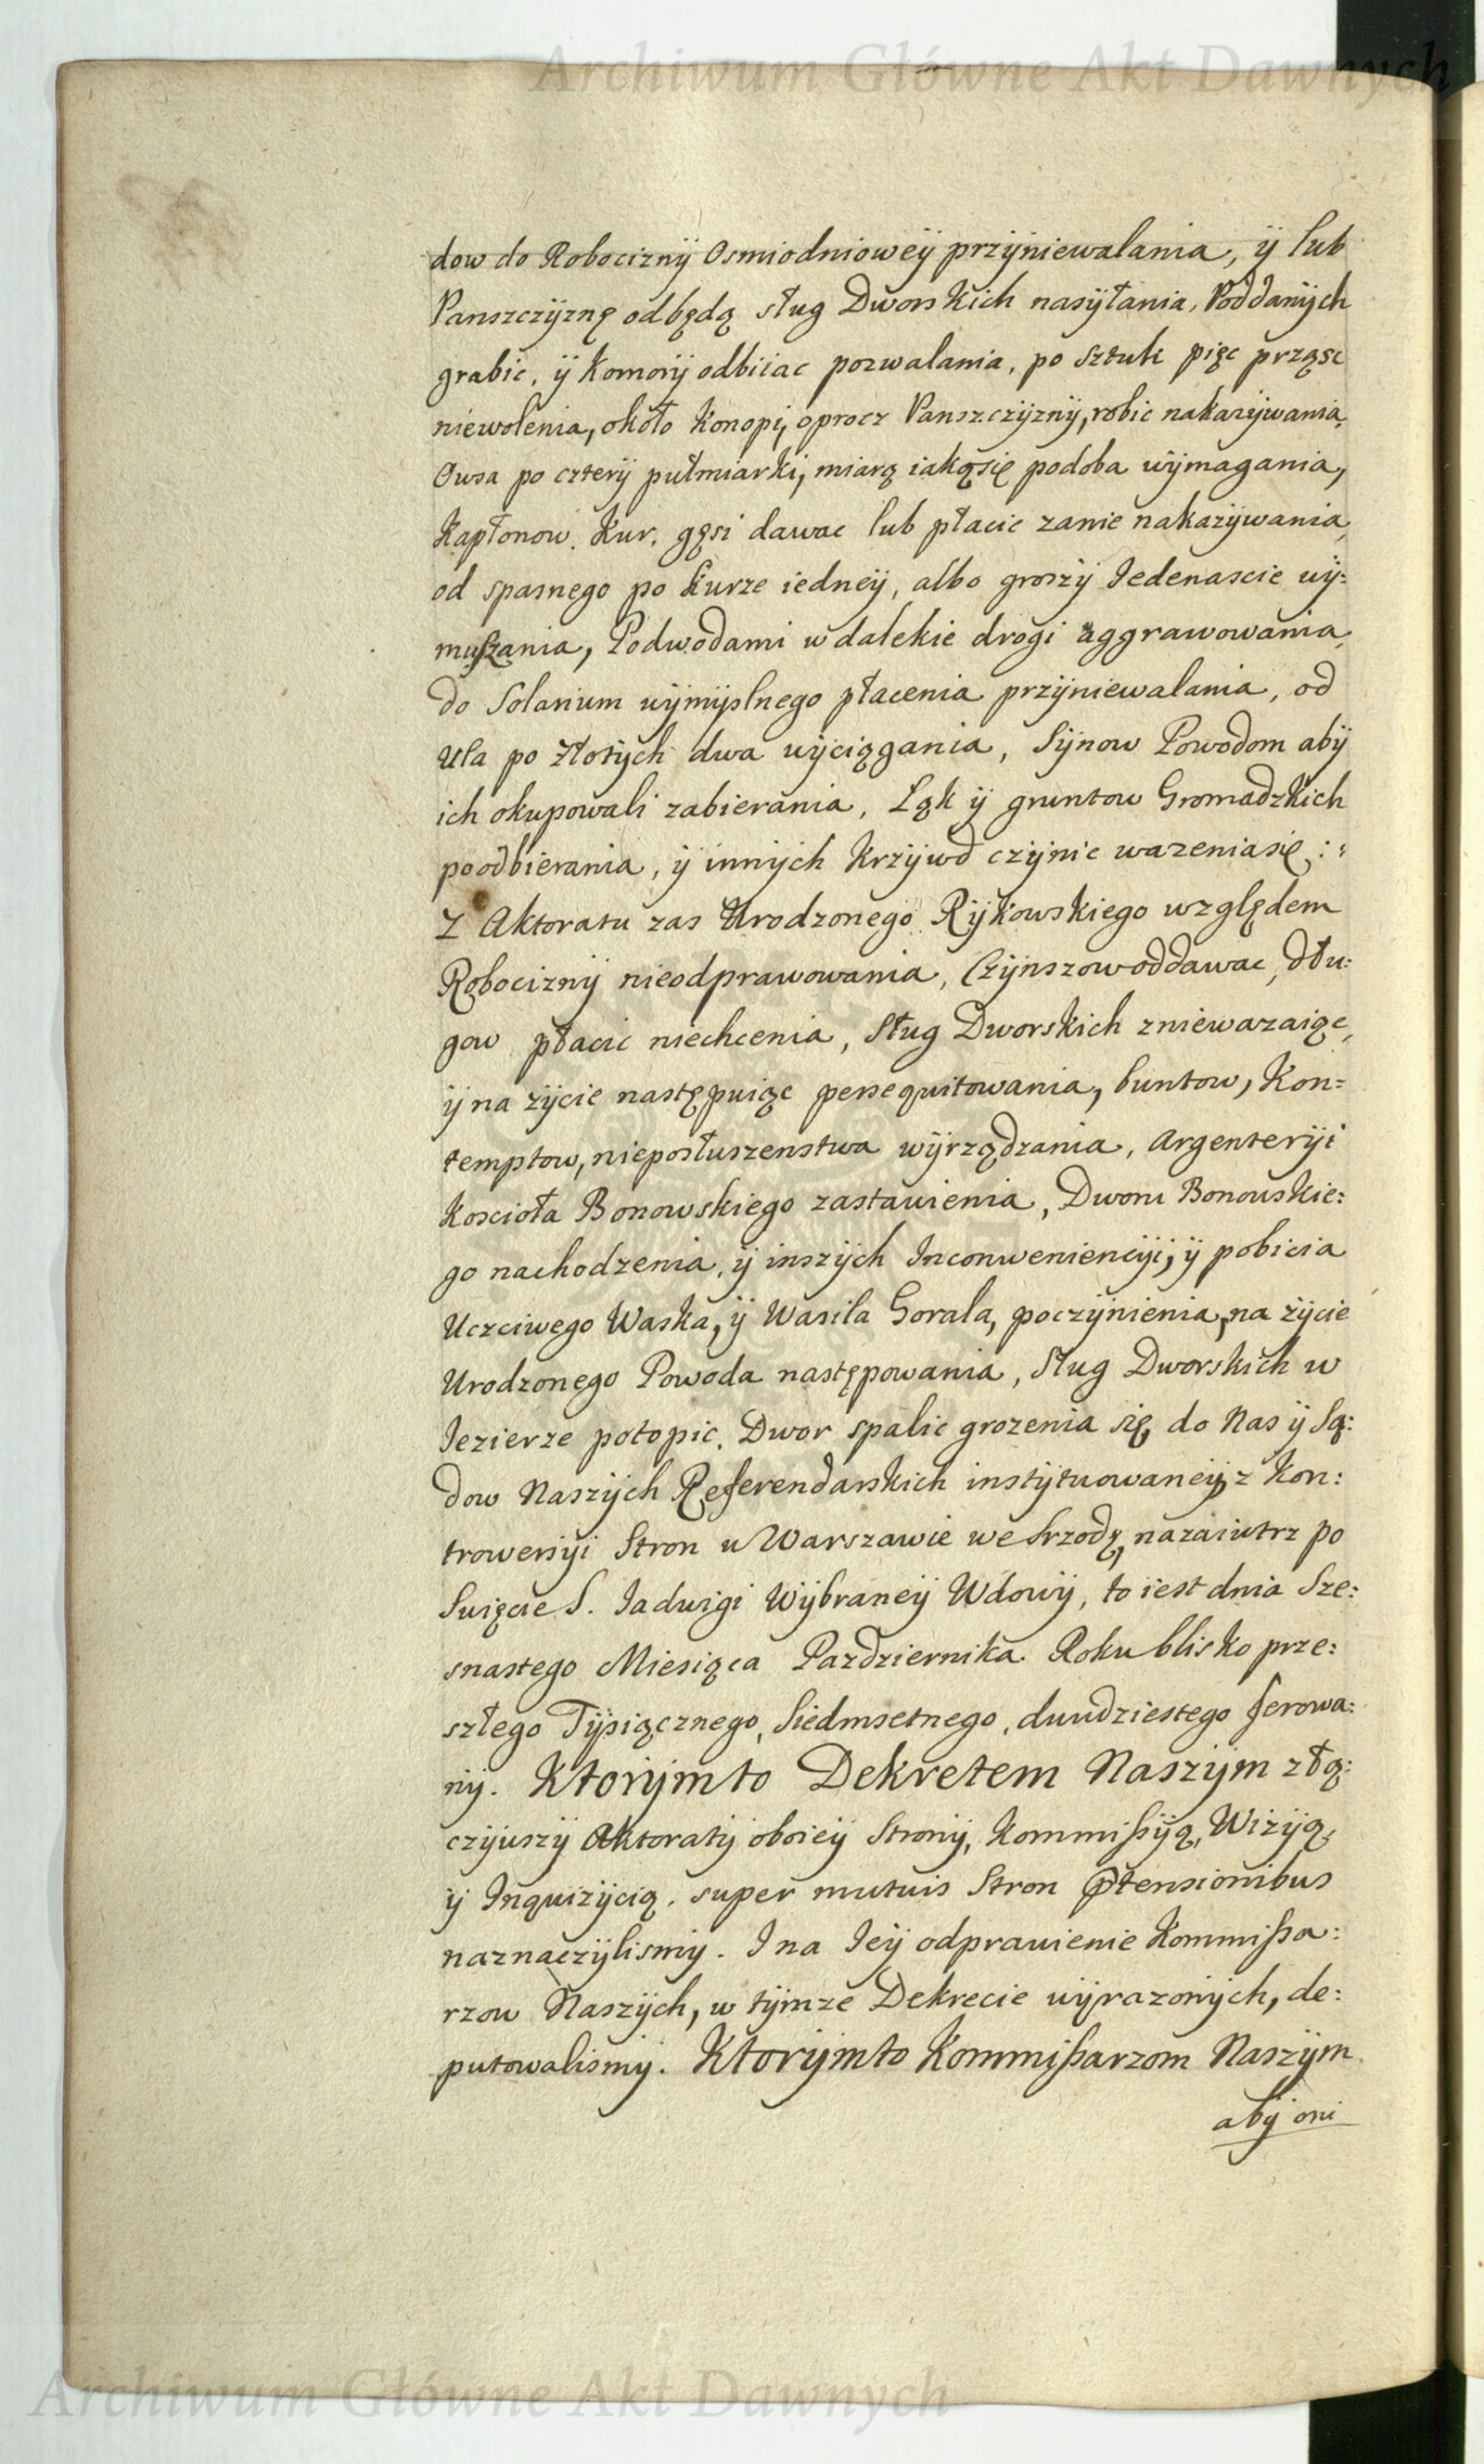 Archiwum Główne Akt Dawnych
dow do Robocizny Osmiodniowey przyniewalania, y lub
Panszczyznę odbędą sług Dworskich nasyłania, Poddanych
grabic, y Komory odbiiac pozwalania, po sztuk pięc prząsc
niewolenia, około Konopi, oprocz Panszczyzny, robic nakazywania,
Owsa po cztery pułmiarki, miarą iaką się podoba wymagania,
Kapłonow, Kur, gęsi dawac lub płacic zanie nakazywania,
od spasnego po kurze iedney, albo groszy Iedenascie wy=
muszania, Podwodami w dalekie drogi aggrawowania,
do Solarium wymyslnego płacenia przyniewalania, od
Ula po Złotych dwa wyciągania, Synow Powodom aby
ich okupowali zabierania, Łąk y gruntow Gromadzkich
poodbierania, y innych Krzywd czynic wazeniasię :=
Z Aktoratu zas Urodzonego Rykowskiego względem
Robocizny nieodprawowania, Czynszow oddawac, dłu:
gow płacic niechcenia, Sług Dworskich zniewazaiąc,
y na zycie następuiąc persequitowania, buntow, Kon=
temptow, nieposłuszenstwa wyrządzania, Argenteryi
Koscioła Bonowskiego zastawienia, Dworu Bonowskie:
go nachodzenia, y inszych Inconweniencyi, y pobicia
Uczciwego Waska, y Wasila Gorala, poczynienia, na życie
Urodzonego Powoda następowania, Sług Dworskich w
Iezierze potopic, Dwor spalic grozenia się, do Nas y Są:
dow Naszych Referendarskich instytuowaney, z Kon:
trowersyi Stron w Warszawie we Srzodę, nazaiutrz po
Swięcie S. Iadwigi Wybraney Wdowy, to iest dnia Sze:
snastego Miesiąca Pazdziernika Roku blisko prze:
szłego Tysiącznego, Siedmsetnego, dwudziestego ferowa:
ny. Ktorymto Dekretem Naszym złą:
czywszy Aktoraty oboiey Strony, Kommissyą, Wizyą,
y Inquizycią, super mutuis Stron ptensionibus
naznaczylismy. I na Iey odprawienie Kommissa:
rzow Naszych, w tymze Dekrecie wyrazonych, de:
putowalismy. Ktorymto Kommissarzom Naszym
aby oni
Archiwum Główne Akt Dawnych